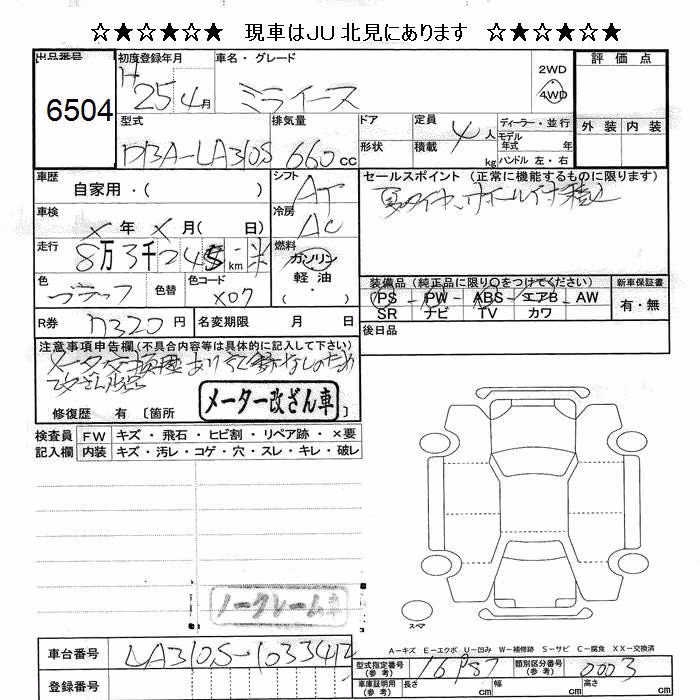 ☆★☆★☆★ 現車はJU北見にあります ☆★☆★☆★
出品番号 6504
初度登録年月 H25 4月
車名・グレード ミライース
2WD
4WD
評価点
外装 内装
型式 DBA-LA310S
排気量 660cc
ドア 形状
定員 4人
積載 kg
ディーラー・並行
モデル年式 年
ハンドル 左・右
車歴 自家用・( )
シフト AT
セールスポイント(正常に機能するものに限ります)
車検 X年 X月( 日)
冷房 AC
走行 8万3千 km
燃料 ガソリン 軽油 ( ・ )
色 ブラック
色替
色コード X07
装備品(純正品に限り○をつけてください)
PS - PW - ABS - エアB - AW
SR ナビ TV カワ
新車保証書 有・無
R券 円
名変期限 月 日
後日品
注意事項申告欄(不具合内容等は具体的に記入して下さい)
修復歴 有 [箇所 ]
メーター改ざん車
検査員記入欄
FW キズ・飛石・ヒビ割・リペア跡・×要
内装 キズ・汚レ・コゲ・穴・スレ・キレ・破レ
ノークレーム車
スペア
A-キズ E-エクボ U-凹み W-補修跡 S-サビ C-腐食 XX-交換済
車台番号
登録番号
型式指定番号(参考)
類別区分番号(参考) 0003
車庫証明用(参考) 長さ cm 幅 cm 高さ cm